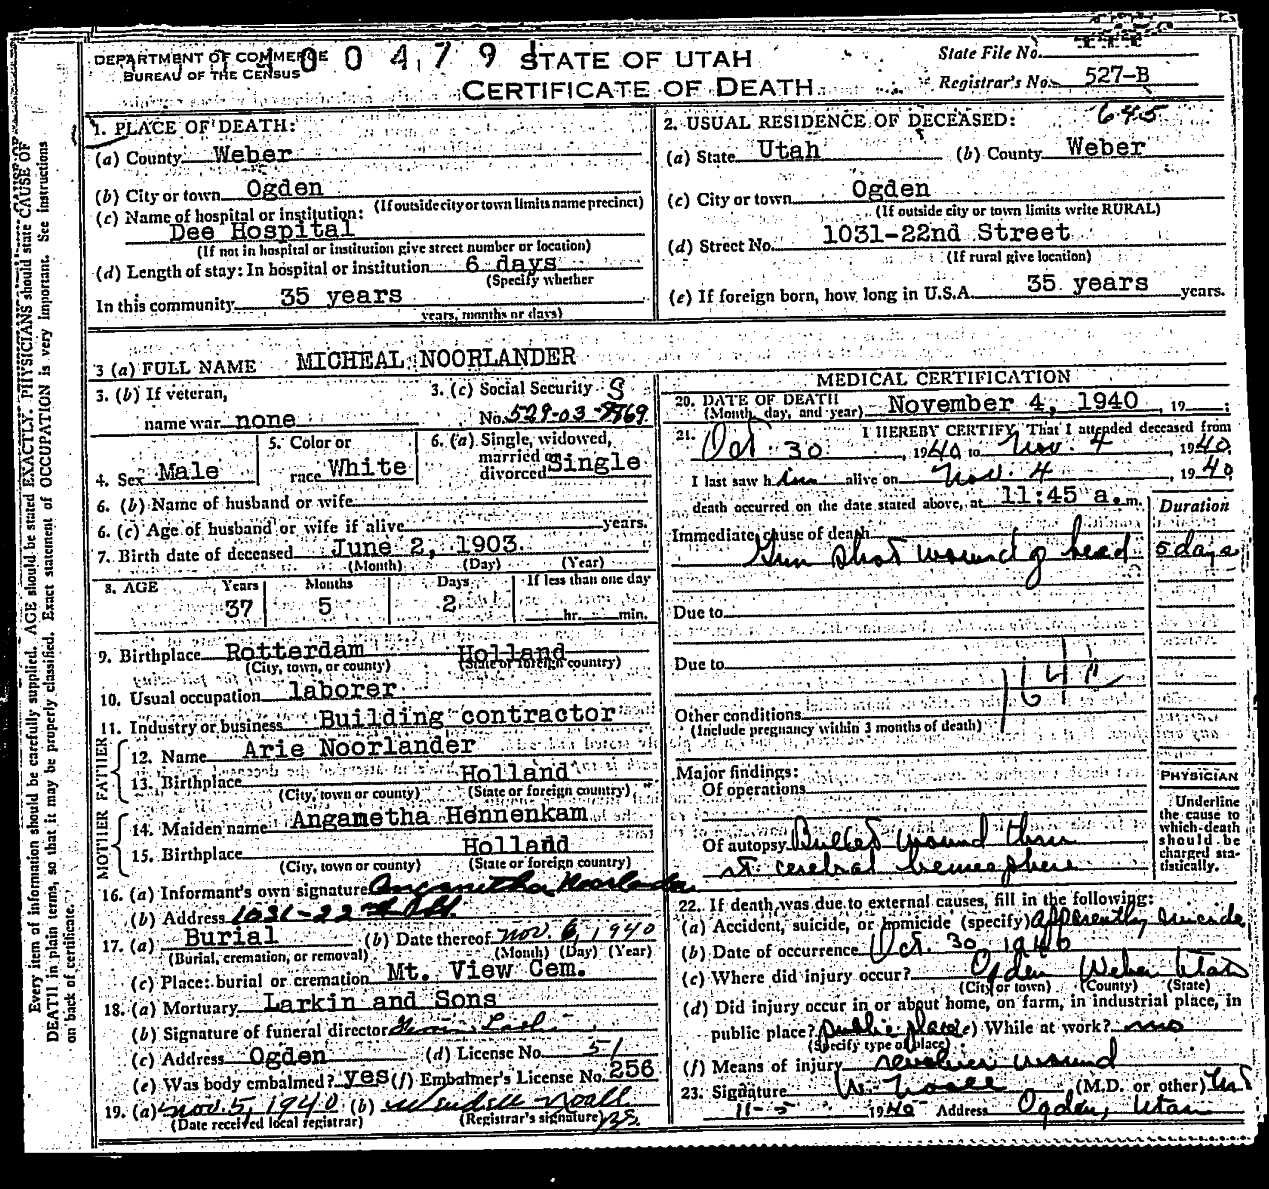 DEPARTMENT OF COMMERCE
BUREAU OF THE CENSUS
0 0 4 7 9
STATE OF UTAH
CERTIFICATE OF DEATH
State File No.
Registrar's No. 527-B
645
1. PLACE OF DEATH:
(a) County Weber
(b) City or town Ogden
(If outside city or town limits name precinct)
(c) Name of hospital or institution:
Dee Hospital
(If not in hospital or institution give street number or location)
(d) Length of stay: In hospital or institution 6 days
(Specify whether
In this community 35 years
years, months or days)
2. USUAL RESIDENCE OF DECEASED:
(a) State Utah (b) County Weber
(c) City or town Ogden
(If outside city or town limits write RURAL)
(d) Street No. 1031-22nd Street
(If rural give location)
(e) If foreign born, how long in U.S.A. 35 years years.
3 (a) FULL NAME MICHEAL NOORLANDER
3. (b) If veteran,
name war none
3. (c) Social Security
No. 529-03-
4. Sex Male
5. Color or
race White
6. (a) Single, widowed,
married or
divorced Single
6. (b) Name of husband or wife
6. (c) Age of husband or wife if alive years.
7. Birth date of deceased June 2, 1903
(Month) (Day) (Year)
8. AGE Years Months Days If less than one day
37 5 2 hr. min.
9. Birthplace Rotterdam Holland
(City, town, or county) (State or foreign country)
10. Usual occupation laborer
11. Industry or business Building contractor
FATHER
12. Name Arie Noorlander
13. Birthplace Holland
(City, town or county) (State or foreign country)
MOTHER
14. Maiden name Angametha Hennenkam
15. Birthplace Holland
(City, town or county) (State or foreign country)
16. (a) Informant's own signature Angametha Noorlander
(b) Address 1031-22nd St.
17. (a) Burial (b) Date thereof Nov. 6, 1940
(Burial, cremation, or removal) (Month) (Day) (Year)
(c) Place: burial or cremation Mt. View Cem.
18. (a) Mortuary Larkin and Sons
(b) Signature of funeral director
(c) Address Ogden (d) License No. 51
(e) Was body embalmed? yes (f) Embalmer's License No. 256
19. (a) Nov. 5, 1940 (b) Wendell Noall
(Date received local registrar) (Registrar's signature)
MEDICAL CERTIFICATION
20. DATE OF DEATH
(Month, day, and year) November 4, 1940, 19 ;
21. I HEREBY CERTIFY, That I attended deceased from
Oct 30, 1940 to Nov. 4, 1940.
I last saw him alive on Nov. 4, 1940
death occurred on the date stated above, at 11:45 a. m.
Duration
Immediate cause of death
Gun shot wound of head 5 days
Due to
Due to
164
Other conditions
(Include pregnancy within 3 months of death)
Major findings:
Of operations
Of autopsy Bullet wound thru
rt. cerebral hemisphere
PHYSICIAN
Underline
the cause to
which death
should be
charged sta-
tistically.
22. If death was due to external causes, fill in the following:
(a) Accident, suicide, or homicide (specify) apparently suicide
(b) Date of occurrence Oct. 30 1940
(c) Where did injury occur? Ogden Weber Utah
(City or town) (County) (State)
(d) Did injury occur in or about home, on farm, in industrial place, in
public place? public place (e) While at work? no
(Specify type of place)
(f) Means of injury revolver wound
23. Signature (M.D. or other)
11-5 1940 Address Ogden, Utah
Every item of information should be carefully supplied. AGE should be stated EXACTLY. PHYSICIANS should state CAUSE OF
DEATH in plain terms, so that it may be properly classified. Exact statement of OCCUPATION is very important. See instructions
on back of certificate.